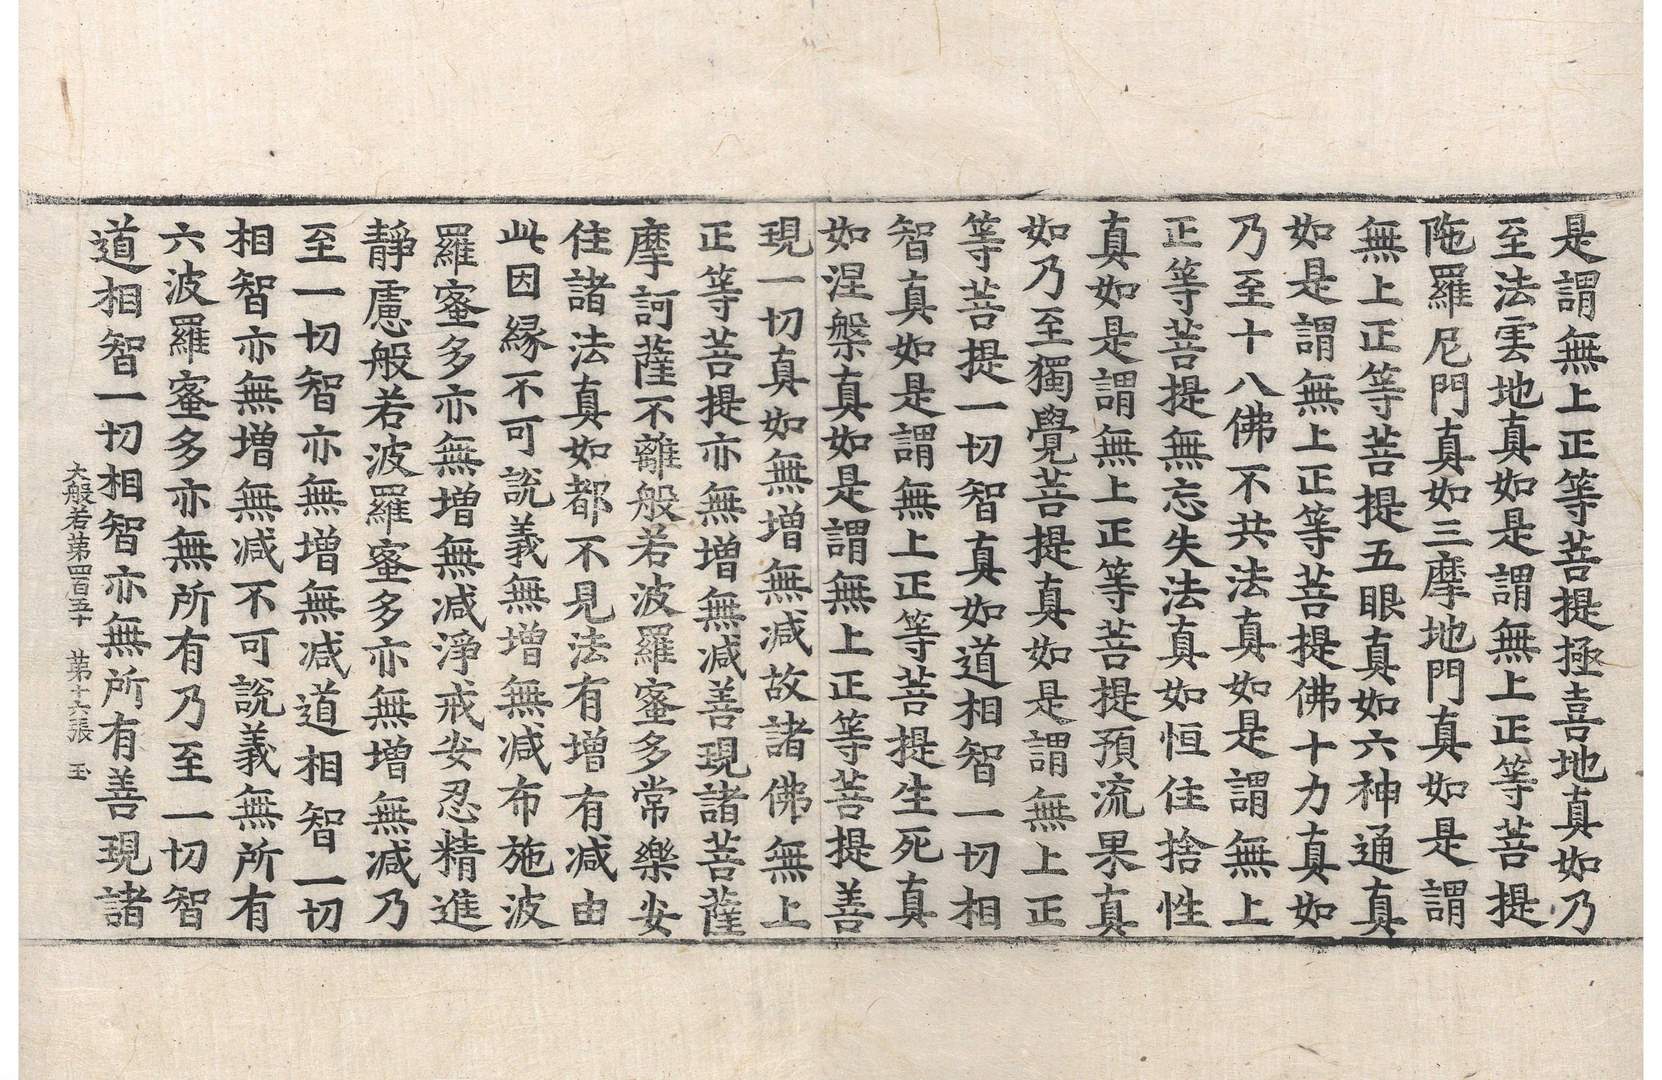 是謂無上正等菩提極喜地真如乃
至法雲地真如是謂無上正等菩提
陁羅尼門真如三摩地門真如是謂
無上正等菩提五眼真如六神通真
如是謂無上正等菩提佛十力真如
乃至十八佛不共法真如是謂無上
正等菩提無忘失法真如恒住捨性
真如是謂無上正等菩提預流果真
如乃至獨覺菩提真如是謂無上正
等菩提一切智真如道相智一切相
智真如是謂無上正等菩提生死真
如涅槃真如是謂無上正等菩提善
現一切真如無增無减故諸佛無上
正等菩提亦無增無减善現諸菩薩
摩訶薩不離般若波羅蜜多常樂安
住諸法真如都不見法有增有减由
此因緣不可說義無增無减布施波
羅蜜多亦無增無减淨戒安忍精進
靜慮般若波羅蜜多亦無增無减乃
至一切智亦無增無减道相智一切
相智亦無增無减不可說義無所有
六波羅蜜多亦無所有乃至一切智
道相智一切相智亦無所有善現諸
大般若第四百五十 第十六張 玉